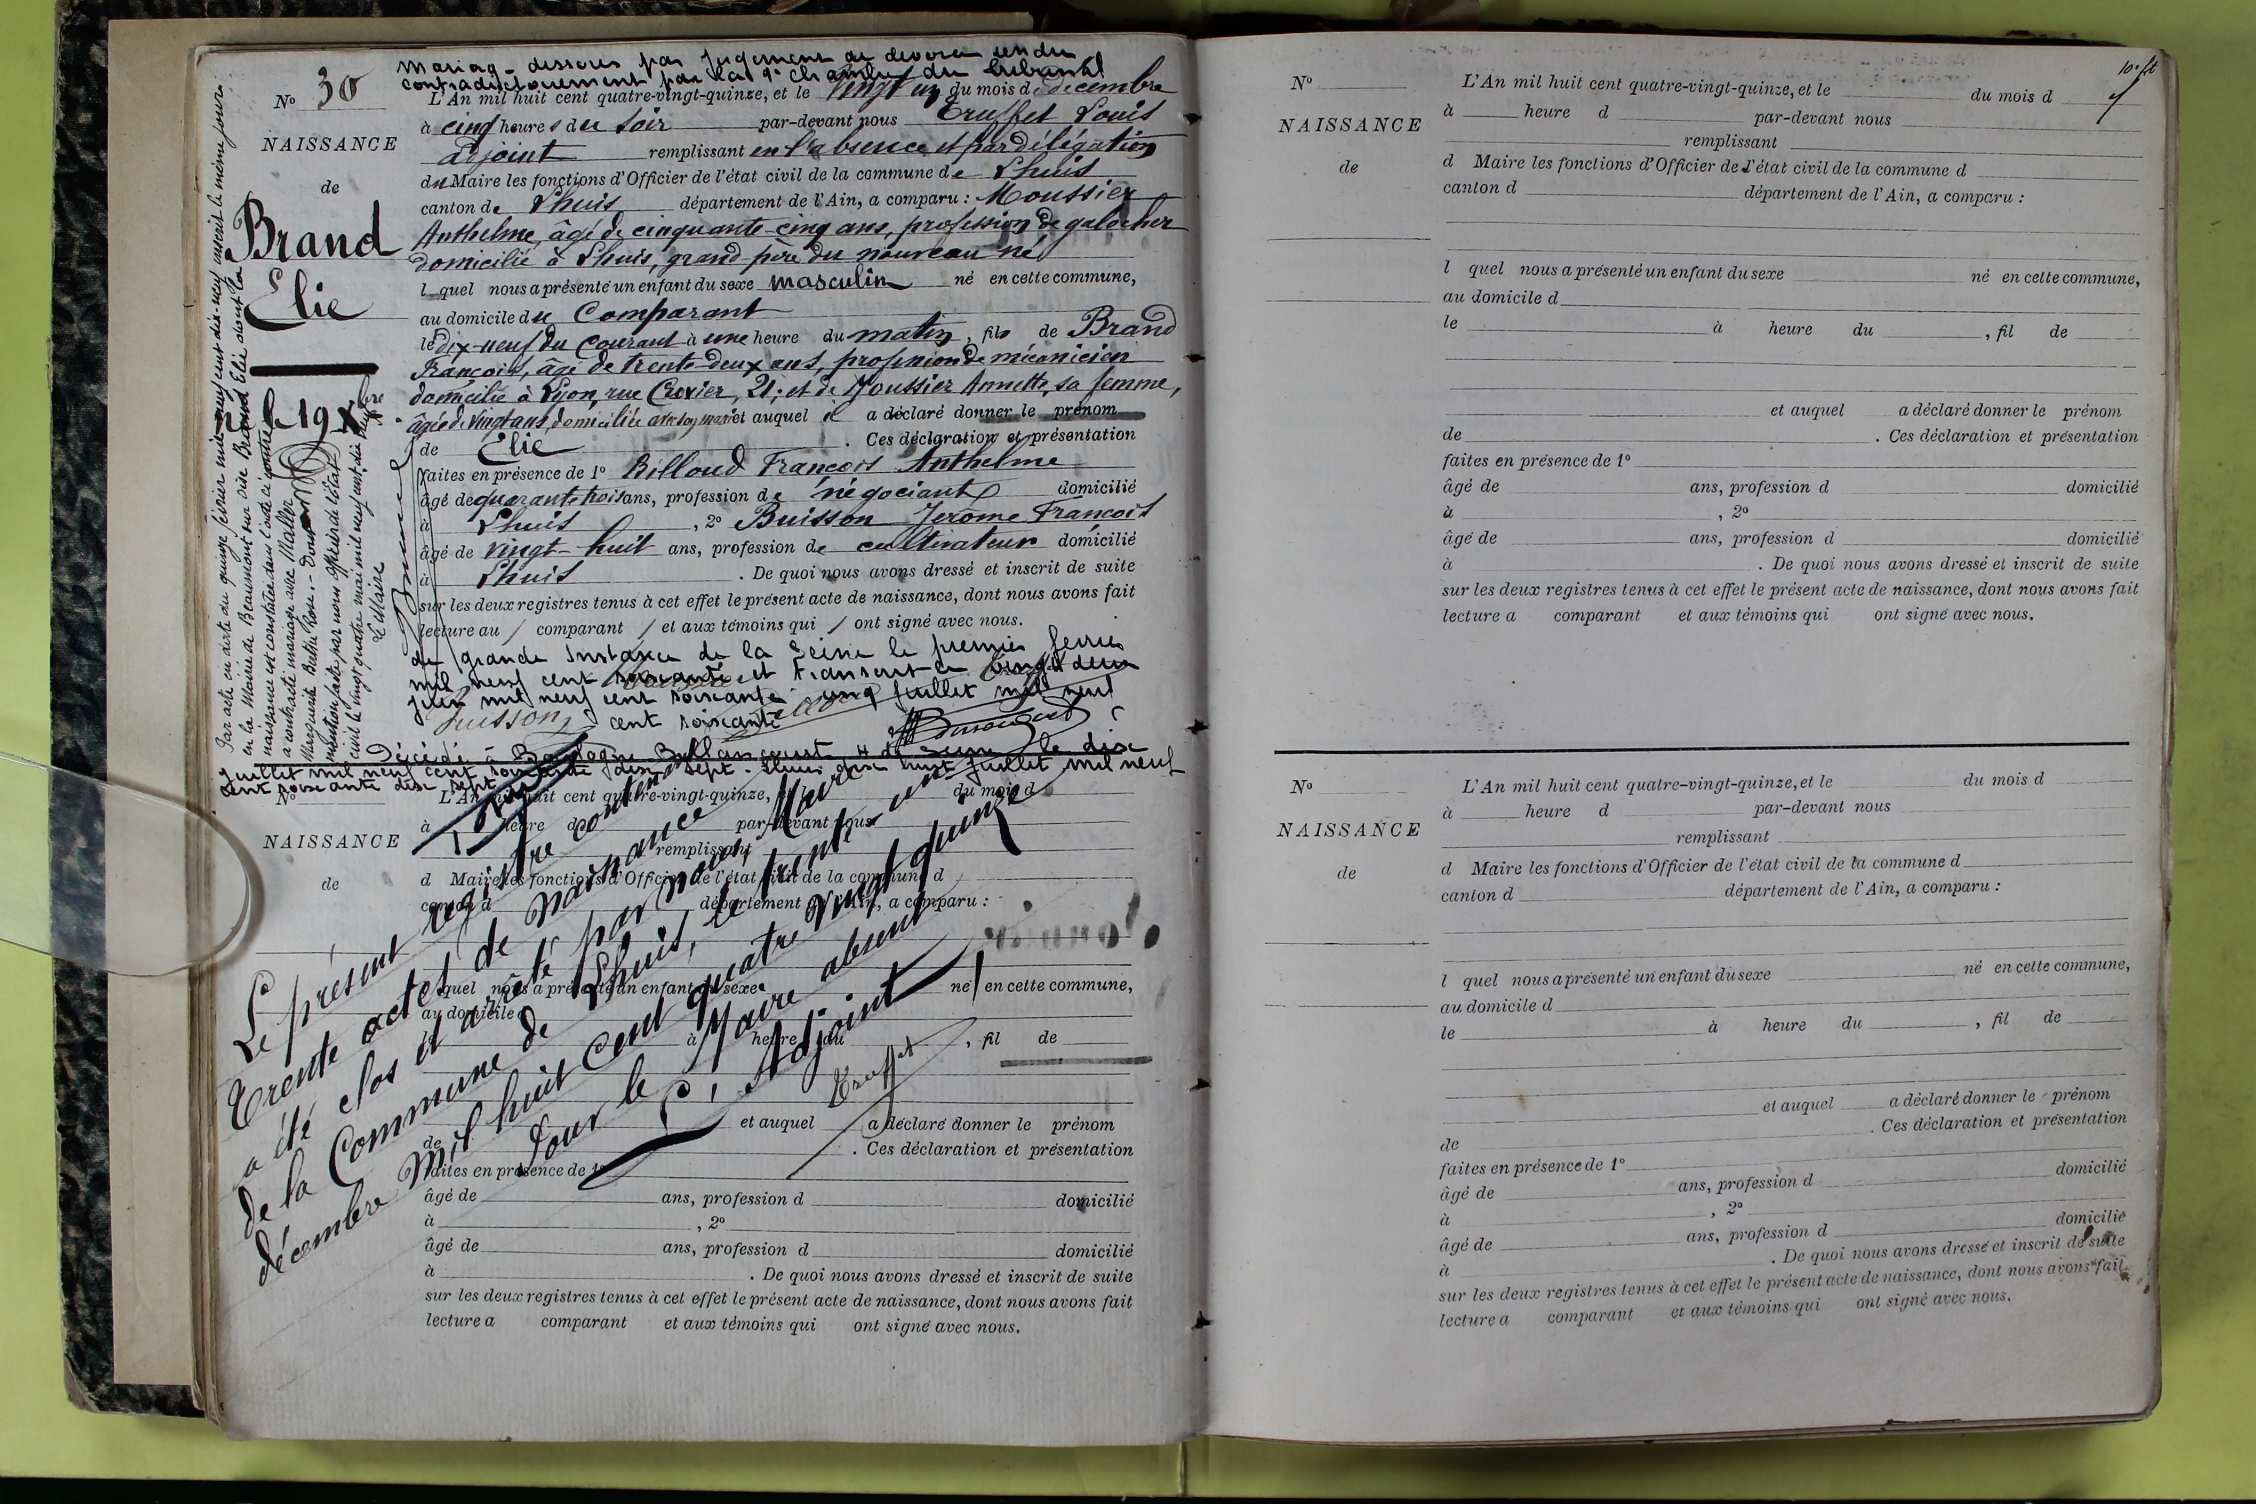 mariage dissous par jugement de divorce rendu
contradictoirement par la 1e chambre du tribunal
N° 30
NAISSANCE
de
Brand
Elie
né le 19 Xbre
L'An mil huit cent quatre-vingt-quinze, et le vingt un du mois de decembre
à cinq heures du soir par-devant nous Truffet Louis
adjoint remplissant en l'absence et par délégation
du Maire les fonctions d'Officier de l'état civil de la commune de Lhuis
canton de Lhuis département de l'Ain, a comparu : Moussier
Anthelme, âgé de cinquante-cinq ans, profession de galocher
domicilié à Lhuis, grand père du nouveau né
l quel nous a présenté un enfant du sexe masculin né en cette commune,
au domicile du Comparant
le dix-neuf du courant à une heure du matin, fils de Brand
François, âgé de trente-deux ans, profession de mécanicien
domicilié à Lyon, rue 21, et de Moussier Annette, sa femme,
âgée de vingt ans, domiciliée avec son mari et auquel il a déclaré donner le prénom
de Elie . Ces déclaration et présentation
faites en présence de 1° Billoud François Anthelme
âgé de quarante trois ans, profession de négociant domicilié
à Lhuis , 2° Buisson Jerome François
âgé de vingt-huit ans, profession de cultivateur domicilié
à Lhuis . De quoi nous avons dressé et inscrit de suite
sur les deux registres tenus à cet effet le présent acte de naissance, dont nous avons fait
lecture au comparant et aux témoins qui ont signé avec nous.
de grande Instance de la Seine le premier fevrier
mil neuf cent soixante et transcrit le vingt deux
juin mil neuf cent soixante. cinq juillet mil neuf
cent soixante
Buisson
Par acte en date du quinze février mil neuf cent dix-neuf inscrit le même jour
en la Mairie de Beaumont sur Oise Brand Elie dont la
naissance est constatée dans l'acte ci contre
a contracté mariage avec Maller
Marguerite Berthe Rose. - Dont
mention faite par nous officier de l'état
civil le vingt quatre mai mil neuf cent dix neuf
Le Maire
Décédé à Boulogne Billancourt H. de Seine le dix
juillet mil neuf cent soixante dix sept - Lhuis dix huit juillet mil neuf
cent soixante dix sept
N°
NAISSANCE
de
L'An mil huit cent quatre-vingt-quinze, du mois d
à heure d par-devant nous
remplissant
d Maire les fonctions d'Officier de l'état civil de la commune d
canton d département de l'Ain, a comparu :
l quel nous a présenté un enfant du sexe né en cette commune,
au domicile d
le à heure du , fil de
et auquel a déclaré donner le prénom
de . Ces déclaration et présentation
faites en présence de 1°
âgé de ans, profession d domicilié
à , 2°
âgé de ans, profession d domicilié
à . De quoi nous avons dressé et inscrit de suite
sur les deux registres tenus à cet effet le présent acte de naissance, dont nous avons fait
lecture a comparant et aux témoins qui ont signé avec nous.
Le présent registre contenant
Trente actes de Naissance
a été clos et arrêté par nous, Maire
de la Commune de Lhuis, le trente un
décembre Mil huit cent quatre vingt quinze
Pour le Maire absent
L'Adjoint
Truffet
10.
N°
NAISSANCE
de
L'An mil huit cent quatre-vingt-quinze, et le du mois d
à heure d par-devant nous
remplissant
d Maire les fonctions d'Officier de l'état civil de la commune d
canton d département de l'Ain, a comparu :
l quel nous a présenté un enfant du sexe né en cette commune,
au domicile d
le à heure du , fil de
et auquel a déclaré donner le prénom
de . Ces déclaration et présentation
faites en présence de 1°
âgé de ans, profession d domicilié
à , 2°
âgé de ans, profession d domicilié
à . De quoi nous avons dressé et inscrit de suite
sur les deux registres tenus à cet effet le présent acte de naissance, dont nous avons fait
lecture a comparant et aux témoins qui ont signé avec nous.
N°
NAISSANCE
de
L'An mil huit cent quatre-vingt-quinze, et le du mois d
à heure d par-devant nous
remplissant
d Maire les fonctions d'Officier de l'état civil de la commune d
canton d département de l'Ain, a comparu :
l quel nous a présenté un enfant du sexe né en cette commune,
au domicile d
le à heure du , fil de
et auquel a déclaré donner le prénom
de . Ces déclaration et présentation
faites en présence de 1°
âgé de ans, profession d domicilié
à , 2°
âgé de ans, profession d domicilié
à . De quoi nous avons dressé et inscrit de suite
sur les deux registres tenus à cet effet le présent acte de naissance, dont nous avons fait
lecture a comparant et aux témoins qui ont signé avec nous.